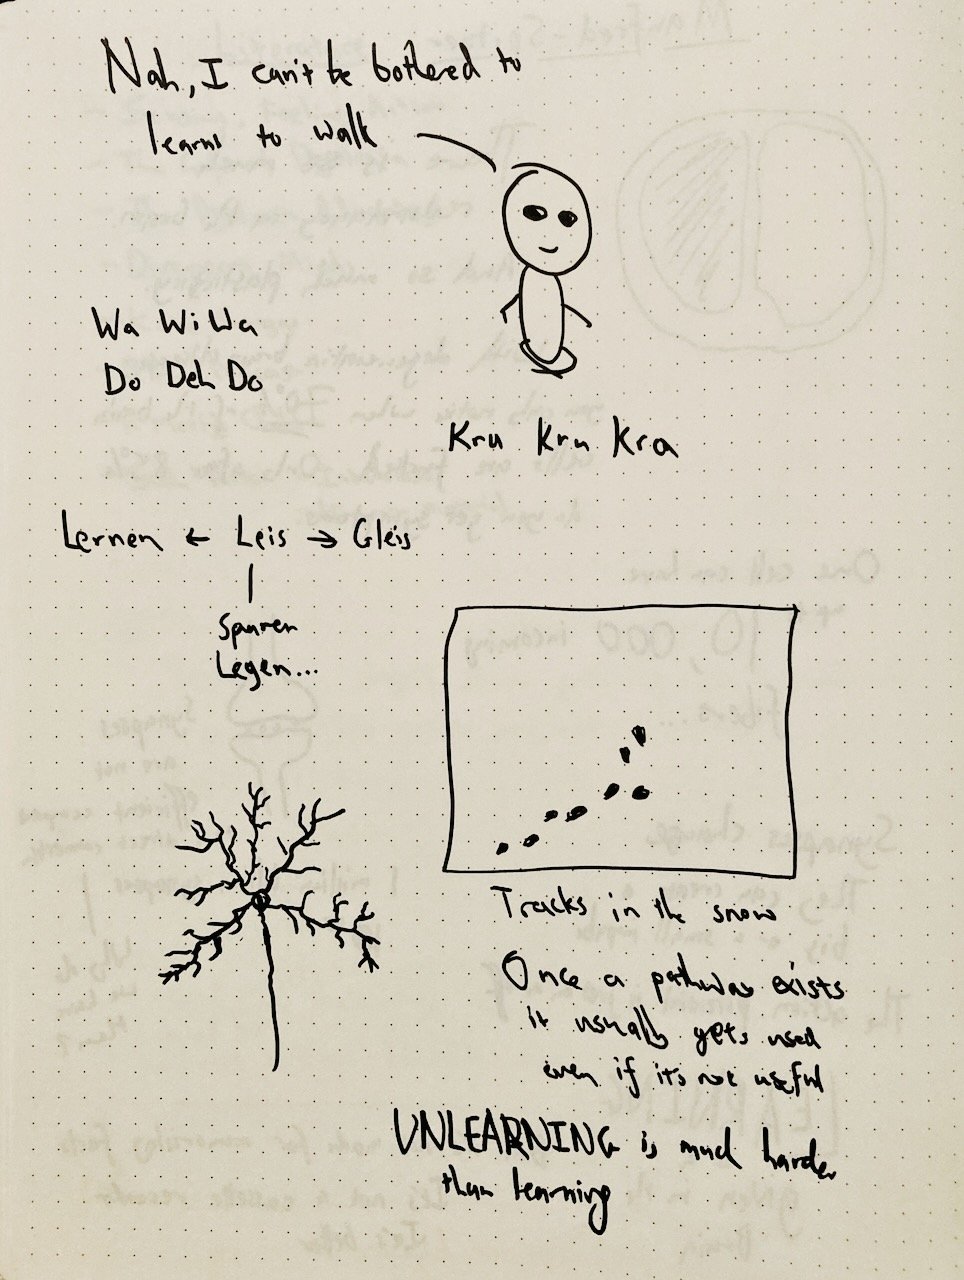 Nah, I can't be bothered to
learn to walk
Wa Wi Wa
Do Deh Do
Kru Kru Kra
Lernen ← Leis → Gleis
Spuren
Legen...
Tracks in the snow
Once a pathway exists
it usually gets used
even if it's not useful
UNLEARNING is much harder
than learning